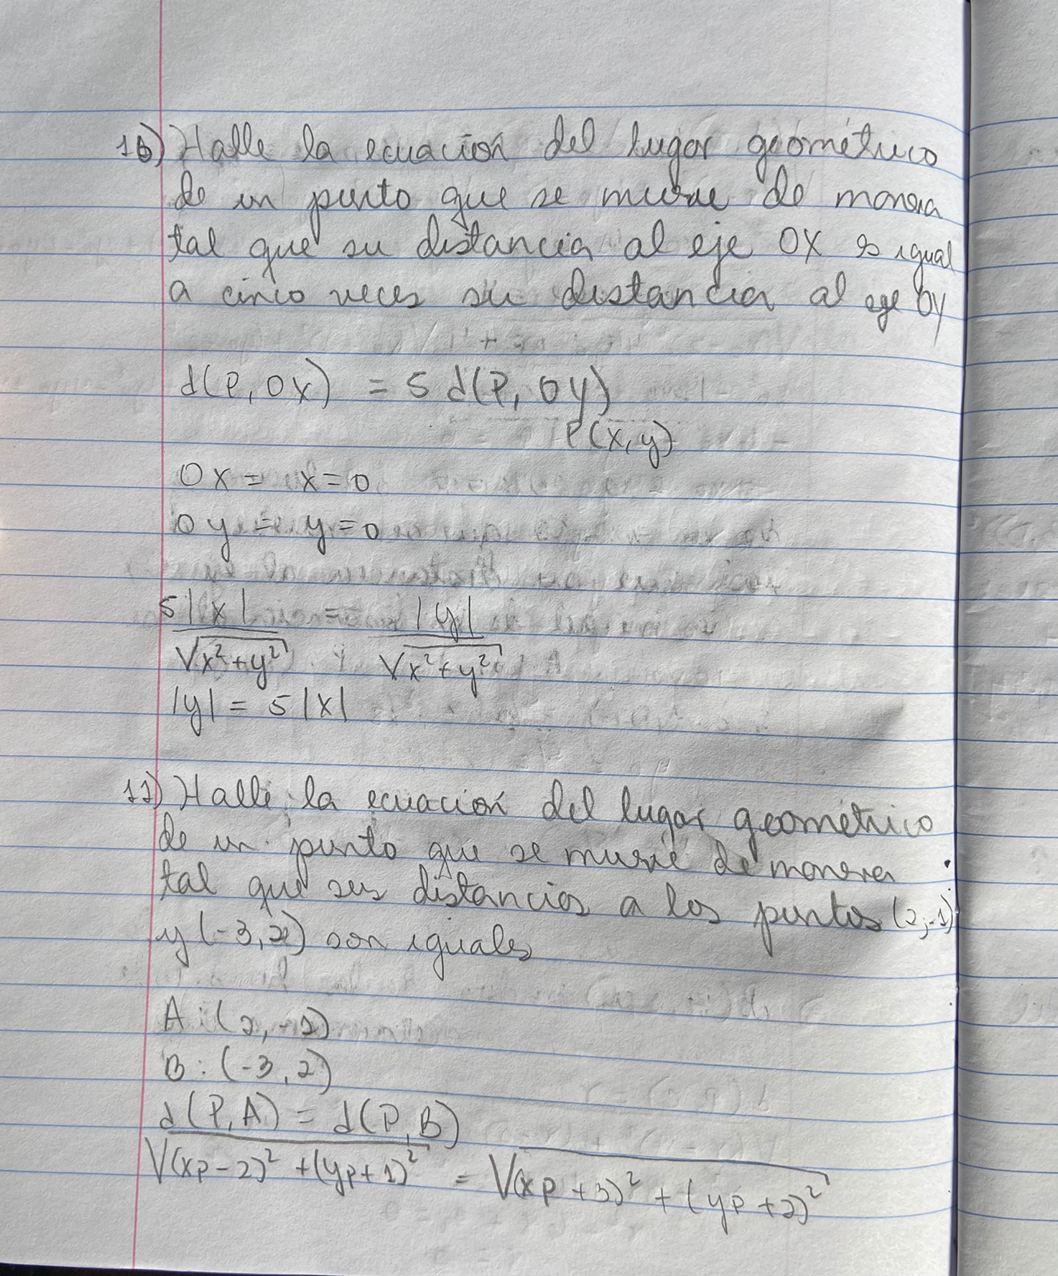 10) Halle la ecuación del lugar geométrico
de un punto que se mueve de manera
tal que su distancia al eje OX es igual
a cinco veces su distancia al eje OY
d(P, OX) = 5 d(P, OY)
P(x,y)
OX = x=0
OY = y=0
5|x| / √x²+y² = |y| / √x²+y²
|y| = 5|x|
11) Halle la ecuación del lugar geométrico
de un punto que se mueve de manera
tal que sus distancias a los puntos (2,-1)
y (-3,2) son iguales
A: (2,-1)
B: (-3,2)
d(P,A) = d(P,B)
√(xp-2)² + (yp+1)² = √(xp+3)² + (yp+2)²